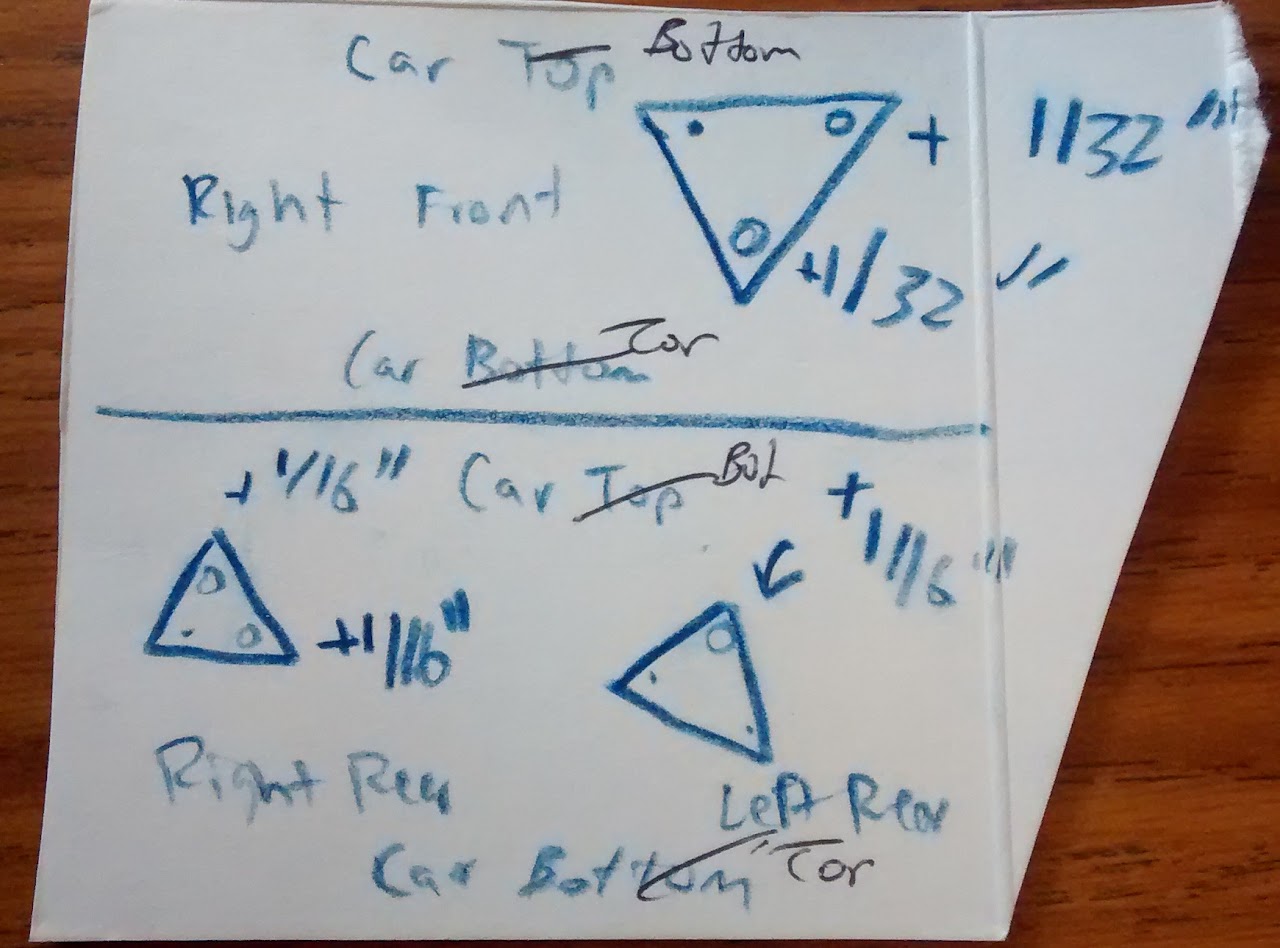 Car Top Bottom
+ 1/32"
Right Front
+1/32"
Car Bottom Top
+ 1/16" Car Top Bot +
1/16"
+1/16"
Right Rear
Left Rear
Car Bottom Top